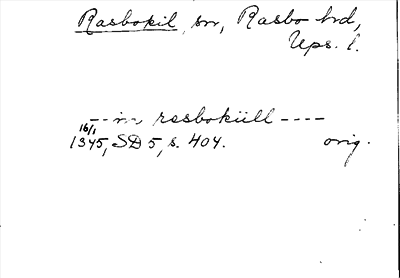 Rasbokil, sn, Rasbo hd,
Ups. l.
-- in rasboküll ----
16/1
1345, SD 5, s. 404. orig.